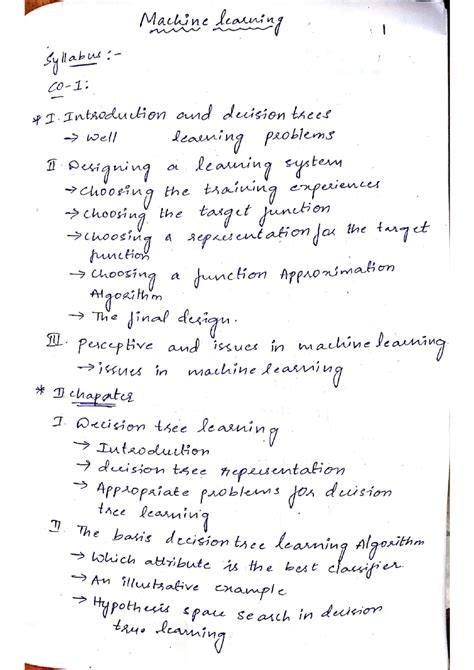 Machine learning
1
Syllabus :-
CO-I:
* I. Introduction and decision trees
→ well learning problems
II. Designing a learning system
→ choosing the training experiences
→ choosing the target function
→ choosing a representation for the target
function
→ Choosing a function Approximation
Algorithm
→ The final design.
III. perceptive and issues in machine learning
→ issues in machine learning
* II chapater
I. Decision tree learning
→ Introduction
→ decision tree representation
→ Appropriate problems for decision
tree learning
II. The basis decision tree learning Algorithm
→ Which attribute is the best classifier.
→ An illustrative example
→ Hypothesis space search in decision
tree learning